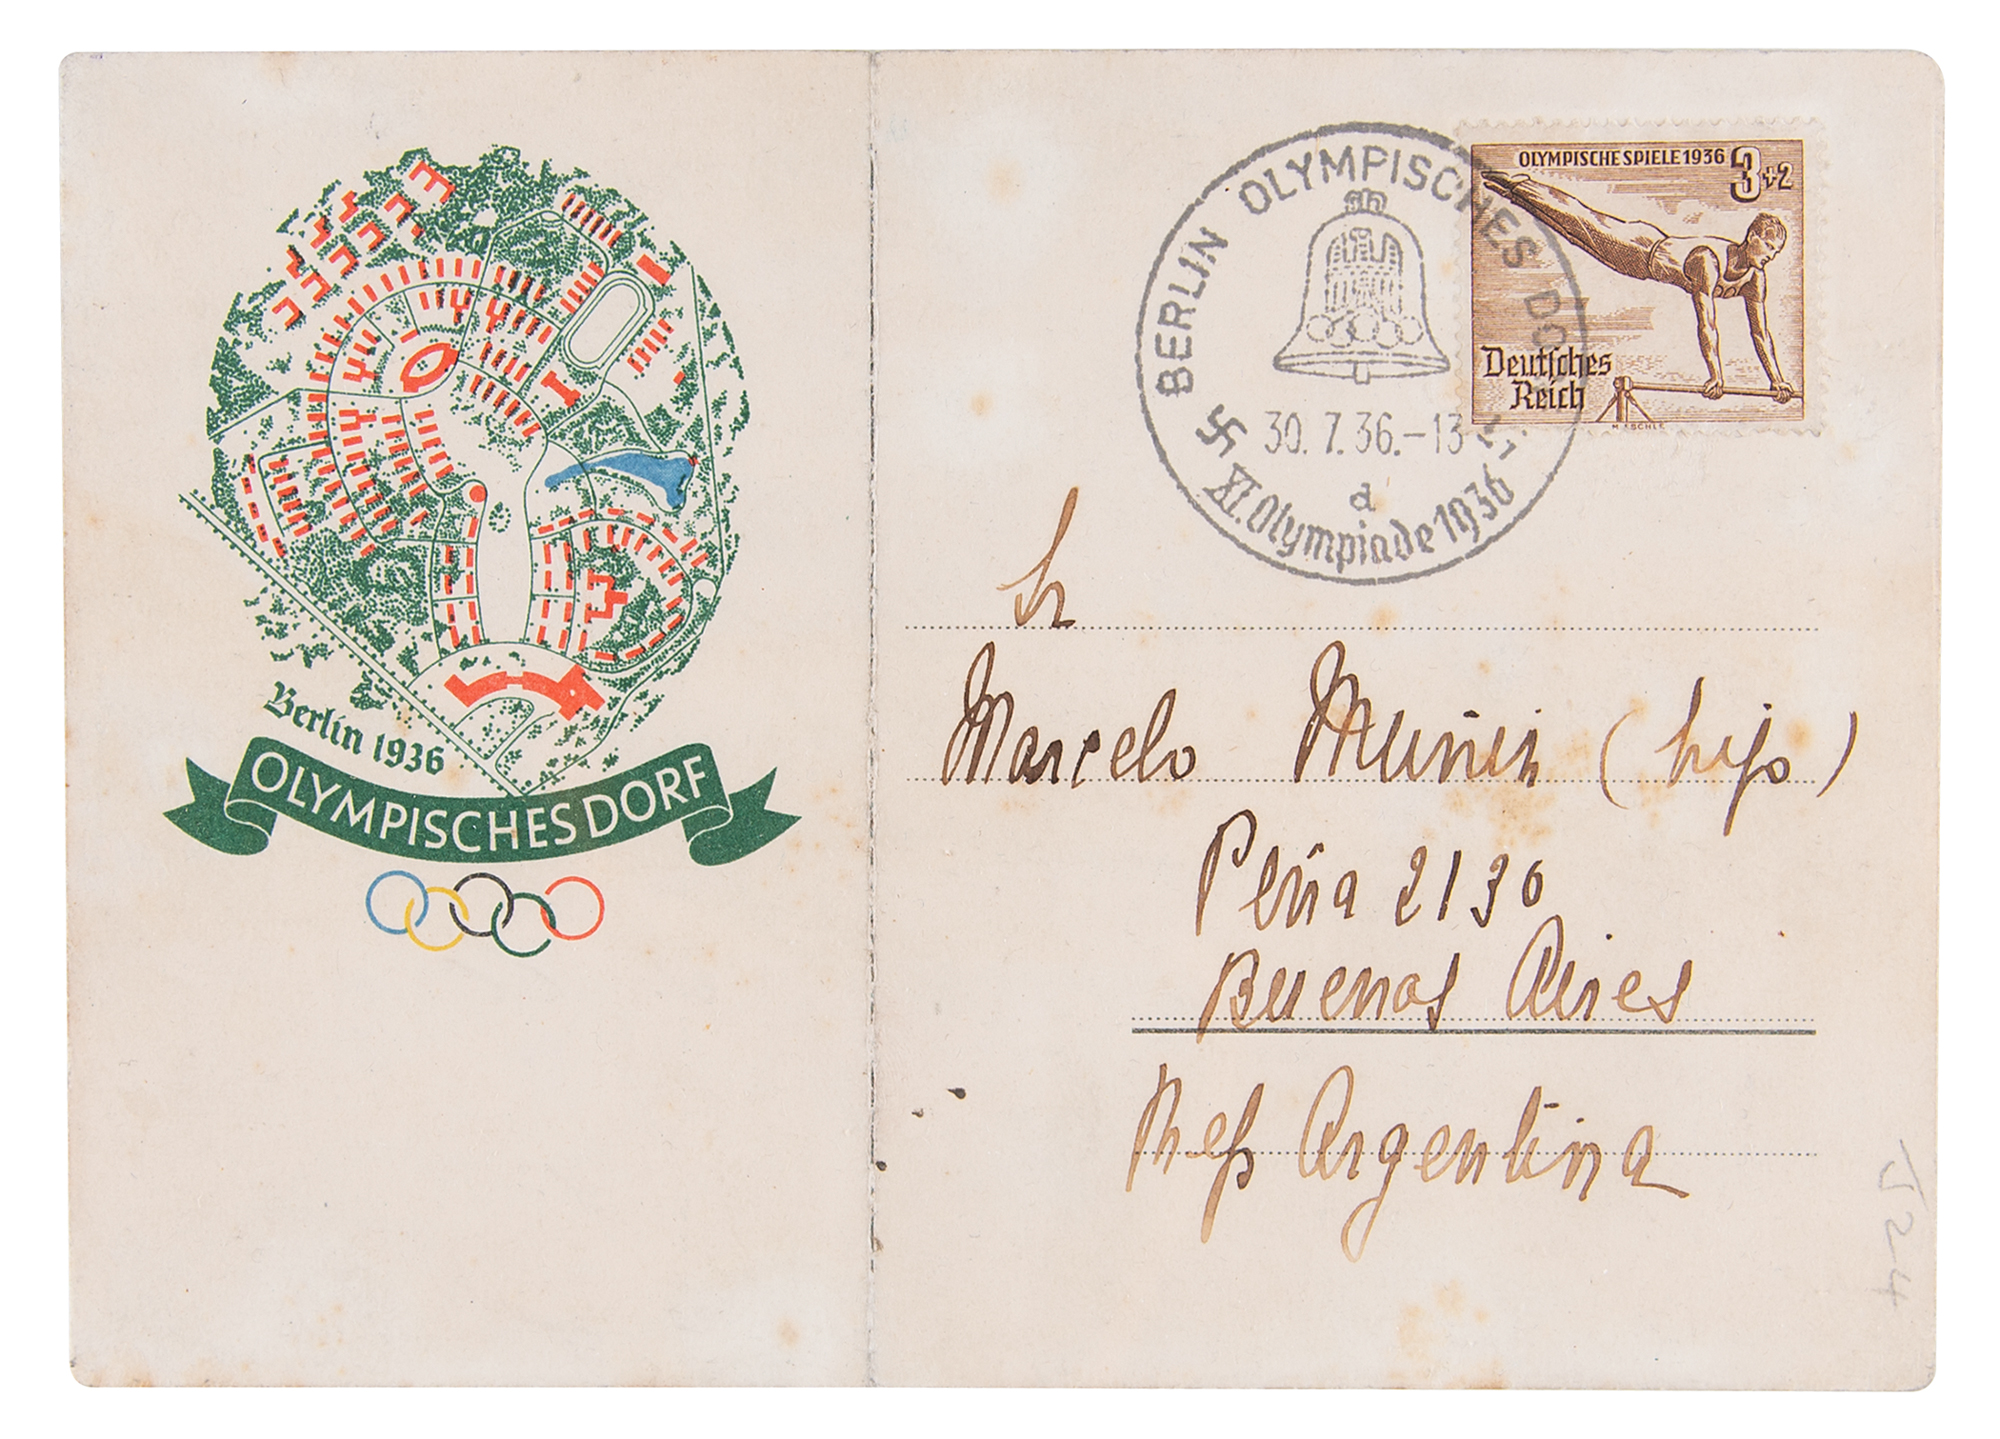 Berlin 1936
OLYMPISCHES DORF
BERLIN OLYMPISCHES DO
30.7.36.-13
d
XI. Olympiade 1936
OLYMPISCHE SPIELE 1936
3+2
Deutsches
Reich
Sr
Marcelo (hijo)
Peña 2130
Buenos Aires
Rep Argentina
24